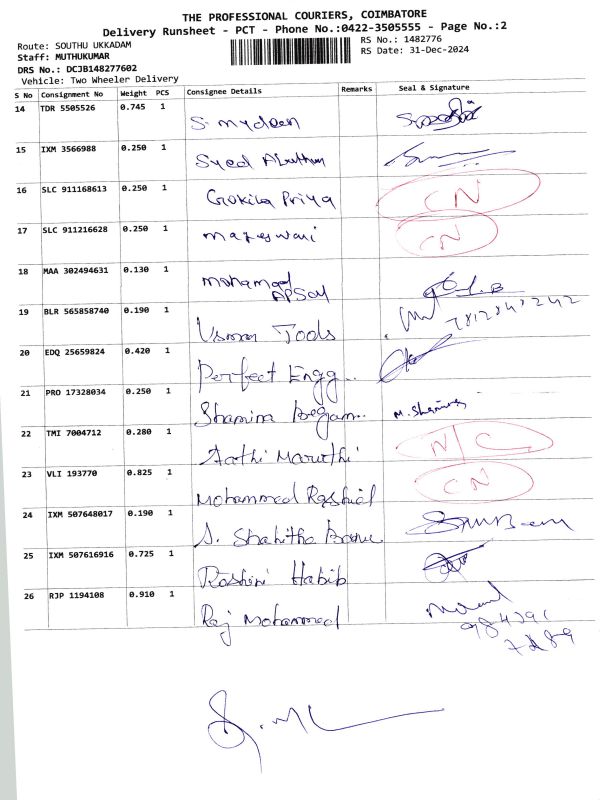 THE PROFESSIONAL COURIERS, COIMBATORE
Delivery Runsheet - PCT - Phone No.:0422-3505555 - Page No.:2
Route: SOUTHU UKKADAM
RS No.: 1482776
Staff: MUTHUKUMAR
RS Date: 31-Dec-2024
DRS No.: DCJB148277602
Vehicle: Two Wheeler Delivery
S No Consignment No Weight PCS Consignee Details Remarks Seal & Signature
14 TDR 5505526 0.745 1 S. mydeen
15 IXM 3566988 0.250 1 Syed
16 SLC 911168613 0.250 1 Gokila Priya CN
17 SLC 911216628 0.250 1 mageswari CN
18 MAA 302494631 0.130 1 mohamed
19 BLR 565858740 0.190 1 Tools 7812848242
20 EDQ 25659824 0.420 1 Perfect Engg..
21 PRO 17328034 0.250 1 Shamina Begam..
22 TMI 7004712 0.280 1 Aathi Maruthi N/C
23 VLI 193770 0.825 1 Mohammed Rashid CN
24 IXM 507648017 0.190 1 S. Shahitha Banu
25 IXM 507616916 0.725 1 Roshini Habib
26 RJP 1194108 0.910 1 Raj Mohammed